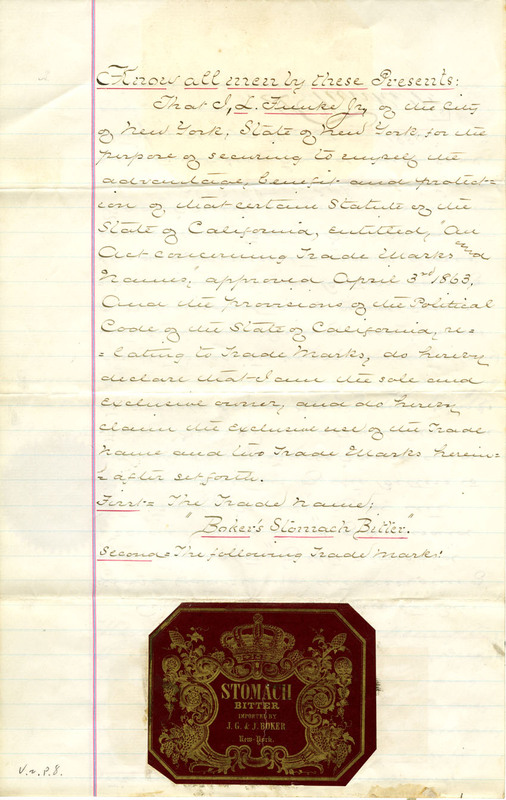 Know all men by these Presents:
That I, L. Funke Jr, of the City
of New York, State of New York for the
purpose of securing to myself the
advantage, benefit and protect=
ion of, that certain Statute of the
State of California, entitled, "An
Act concerning Trade Marks and
Names," approved April 3rd 1863,
And the provisions of the Political
Code of the State of California, re=
=lating to Trade Marks, do hereby
declare that I am the sole and
exclusive owner, and do hereby
claim the exclusive use of the Trade
Name and two Trade Marks herein=
=after set forth.
First= The Trade Name;
"Boker's Stomach Bitter".
Second= The following Trade Marks:
STOMACH
BITTER
IMPORTED BY
J. G. & J. BOKER
New-York.
V. 2. P. 8.